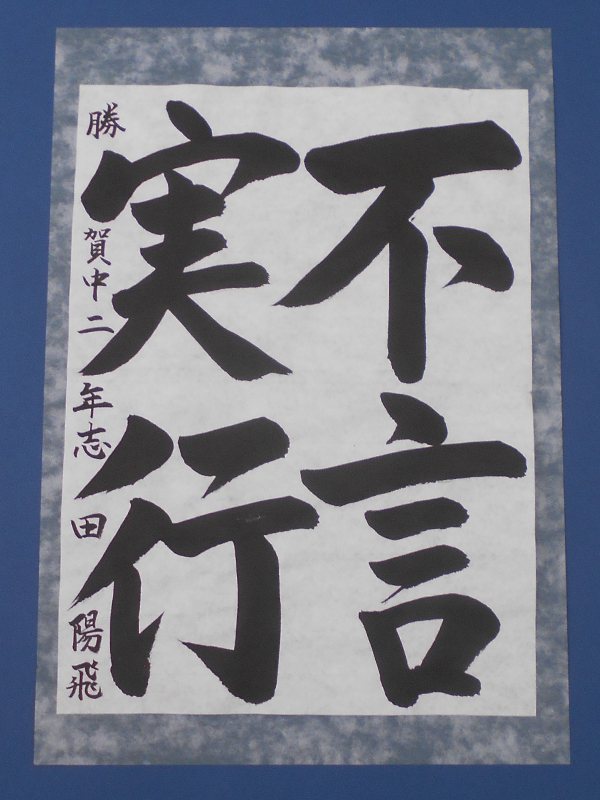 不言
実行
勝賀中二年志田陽飛